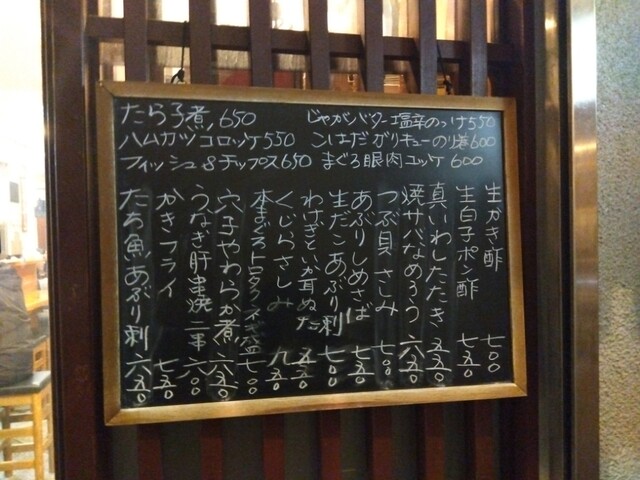 たら子煮 650
ハムカツコロッケ 550
フィッシュ&チップス 650
じゃがバター塩辛のっけ 550
こはだガリキューのり巻 600
まぐろ眼肉ユッケ 600
生かき酢 七〇〇
生白子ポン酢 七五〇
真いわしたたき 五五〇
焼サバなめろう 六五〇
つぶ貝さしみ 七〇〇
あぶりしめさば 七五〇
生だこあぶり刺 七〇〇
わけぎといか耳ぬた 五五〇
くじらさしみ 九五〇
本まぐろトロタク 盛 七〇〇
穴子やわらか煮 六五〇
うなぎ肝串焼 二本 六〇〇
かきフライ 七五〇
たち魚あぶり刺 六五〇